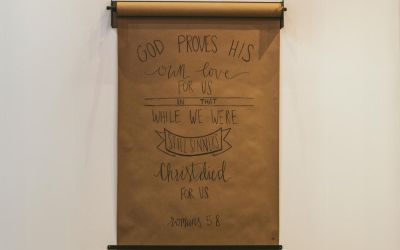 GOD PROVES HIS
own love
FOR US
IN THAT
WHILE WE WERE
STILL SINNERS
Christ died
FOR US
romans 5:8